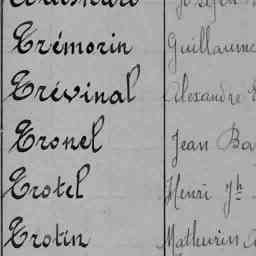 Trémorin Guillaume
Trévinal Alexandre
Tronel Jean Ba
Trotel Henri Jh
Trotin Mathurin